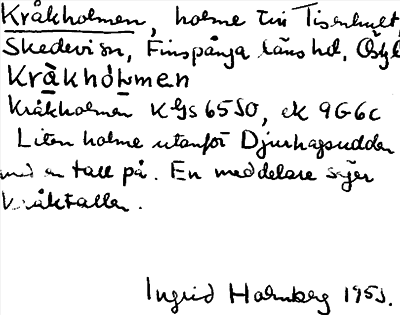 Kråkholmen, holme till Tisenhult,
Skedevi sn, Finspånga läns hd, Östgl
Kråkhòlmen
Kråkholmen K Gs 65 SO, ek 9G6c
Liten holme utanför Djurhagsudden
med en tall på. En meddelare säger
Kråktallen.
Ingrid Holmberg 1953.